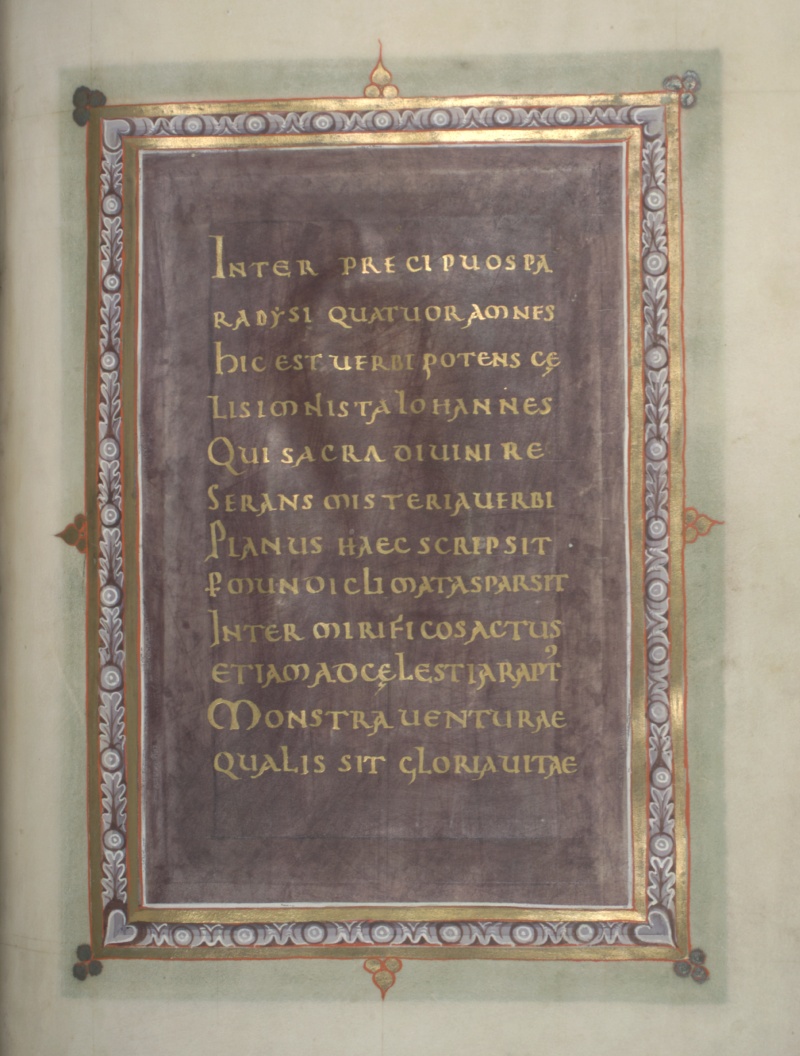 INTER PRECIPUOS PA
RADYSI QUATUOR AMNES
HIC EST UERBI POTENS CĘ
LIS IMNISTA IOHANNES
QUI SACRA DIUINI RE
SERANS MISTERIA UERBI
PLANUS HAEC SCRIPSIT
P̲ MUNDI CLIMATA SPARSIT
INTER MIRIFICOS ACTUS
ETIAM AD CĘLESTIA RAPTꝰ
MONSTRA UENTURAE
QUALIS SIT GLORIA UITAE